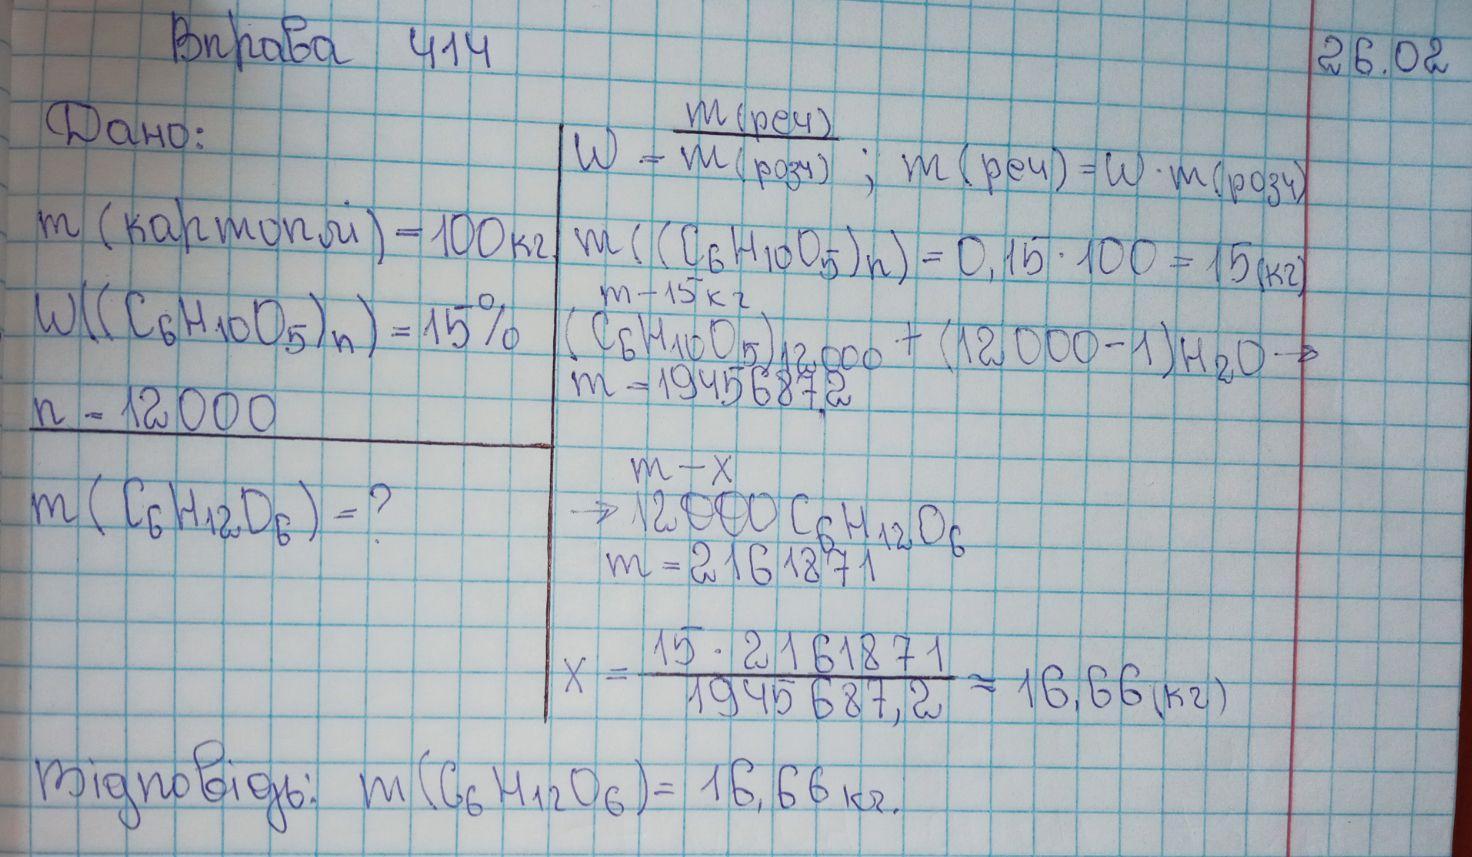 Вправа 414
26.02
Дано:
m (картоплі) = 100 кг
W((C₆H₁₀O₅)n) = 15%
n = 12000
m(C₆H₁₂O₆) = ?
W = m(реч) / m(розч) ; m(реч) = W · m(розч)
m((C₆H₁₀O₅)n) = 0,15 · 100 = 15 (кг)
m - 15 кг
(C₆H₁₀O₅)₁₂₀₀₀ + (12000 - 1)H₂O →
m = 1945687,2
m - x
→ 12000 C₆H₁₂O₆
m = 2161871
x = 15 · 2161871 / 1945687,2 ≈ 16,66 (кг)
Відповідь: m(C₆H₁₂O₆) = 16,66 кг.